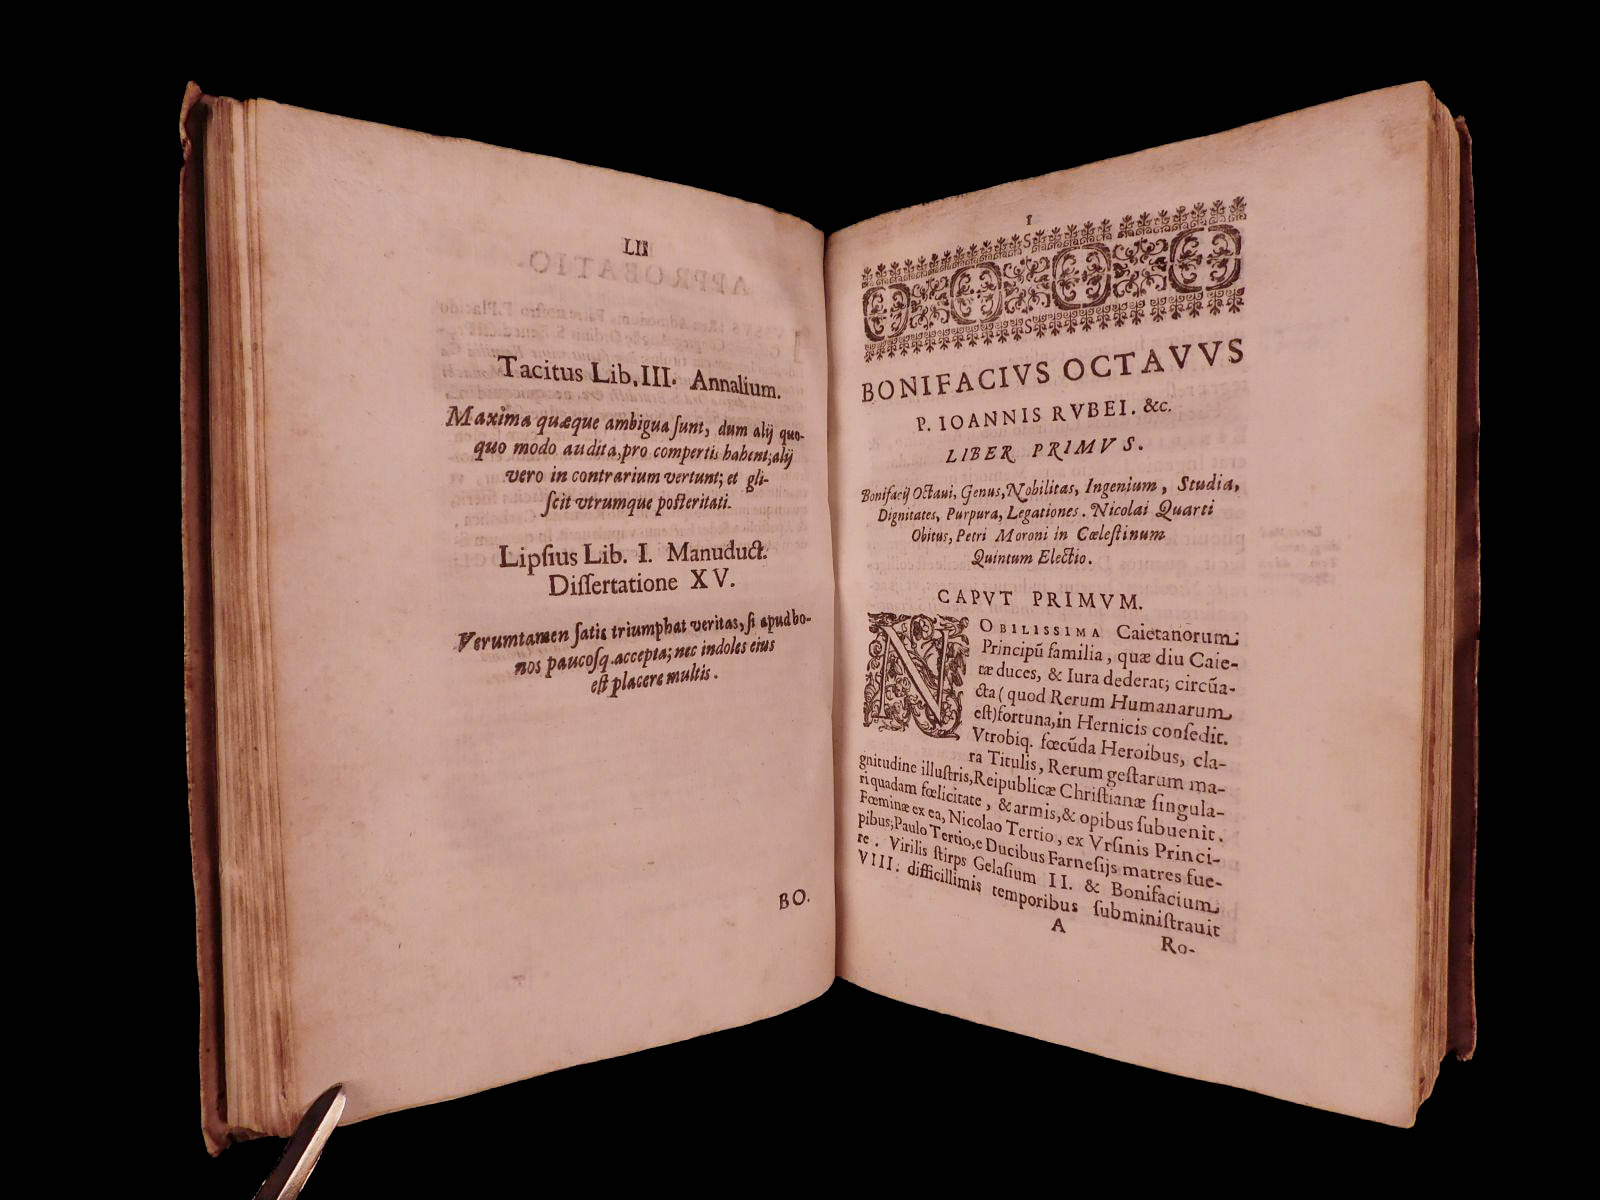 LII
Tacitus Lib. III. Annalium.
Maxima quæque ambigua ſunt, dum alij quo-
quo modo audita, pro compertis habent; alij
vero in contrarium vertunt; et gli-
ſcit vtrumque poſteritati.
Lipſius Lib. I. Manuduct.
Diſſertatione XV.
Verumtamen ſatis triumphat veritas, ſi apud bo-
nos paucoſq. accepta; nec indoles eius
eſt placere multis.
BO.
1
BONIFACIVS OCTAVVS
P. IOANNIS RVBEI. &c.
LIBER PRIMVS.
Bonifacij Octaui, Genus, Nobilitas, Ingenium, Studia,
Dignitates, Purpura, Legationes. Nicolai Quarti
Obitus, Petri Moroni in Cœleſtinum
Quintum Electio.
CAPVT PRIMVM.
NOBILISSIMA Caietanorum
Principū familia, quæ diu Caie-
tæ duces, & Iura dederat; circūa-
cta (quod Rerum Humanarum
eſt) fortuna, in Hernicis conſedit.
Vtrobiq. fœcūda Heroibus, cla-
ra Titulis, Rerum geſtarum ma-
gnitudine illuſtris, Reipublicæ Chriſtianæ ſingula-
ri quadam fœlicitate, & armis, & opibus ſubuenit.
Fœminæ ex ea, Nicolao Tertio, ex Vrſinis Princi-
pibus; Paulo Tertio, e Ducibus Farneſijs matres fue-
re. Virilis ſtirps Gelaſium II. & Bonifacium
VIII. difficillimis temporibus ſubminiſtrauit
A
Ro-